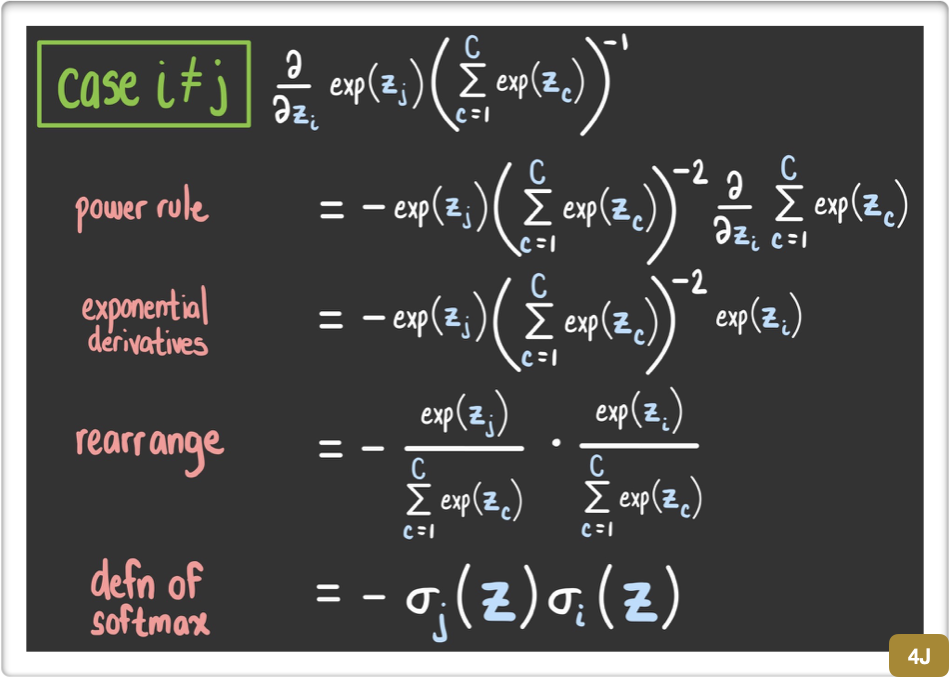 case i ≠ j ∂/∂z_i exp(z_j) (∑_{c=1}^{C} exp(z_c))^{-1}
power rule = − exp(z_j) (∑_{c=1}^{C} exp(z_c))^{-2} ∂/∂z_i ∑_{c=1}^{C} exp(z_c)
exponential
derivatives = − exp(z_j) (∑_{c=1}^{C} exp(z_c))^{-2} exp(z_i)
rearrange = − exp(z_j)/∑_{c=1}^{C} exp(z_c) · exp(z_i)/∑_{c=1}^{C} exp(z_c)
defn of
softmax = − σ_j(z) σ_i(z)
4J